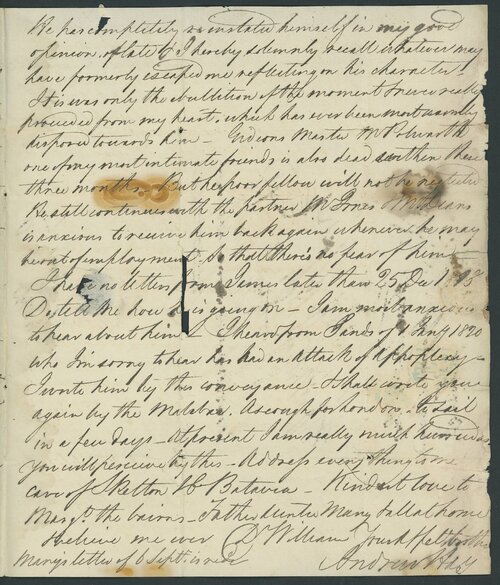 He has completely reinstated himself in my good
opinion of late & I hereby solemnly recall whatever may
have formerly escaped me reflecting on his character.
It was only the ebullition of the moment & never really
proceeded from my heart, which has ever been most warmly
disposed towards him – Gideons Master Mr
one of my most intimate friends is also dead within these
three months. But the poor fellow will not be neglected
He still continues with the partner Mr Jones &
is anxious to receive him back again whenever he may
be out of employment, so that there's no fear of him –
I have no letters from James later than 25 Dec
Do tell me how he is going on – I am most anxious
to hear about him – I heard from of Jany 1820
who I'm sorry to hear has had an attack of appoplexy –
I write him by this conveyance – & shall write you
again by the Malabar. Ascough for London to sail
in a few days – At present I am really much hurried as
you will perceive by this – Address every thing to me
care of Skelton & Co Batavia – Kindest love to
Margt. the bairns – Father auntie Mary & all at home
& believe me ever Dr William Yours affectionately
Mary's letter of 6 Septr is recd Andrew Hay